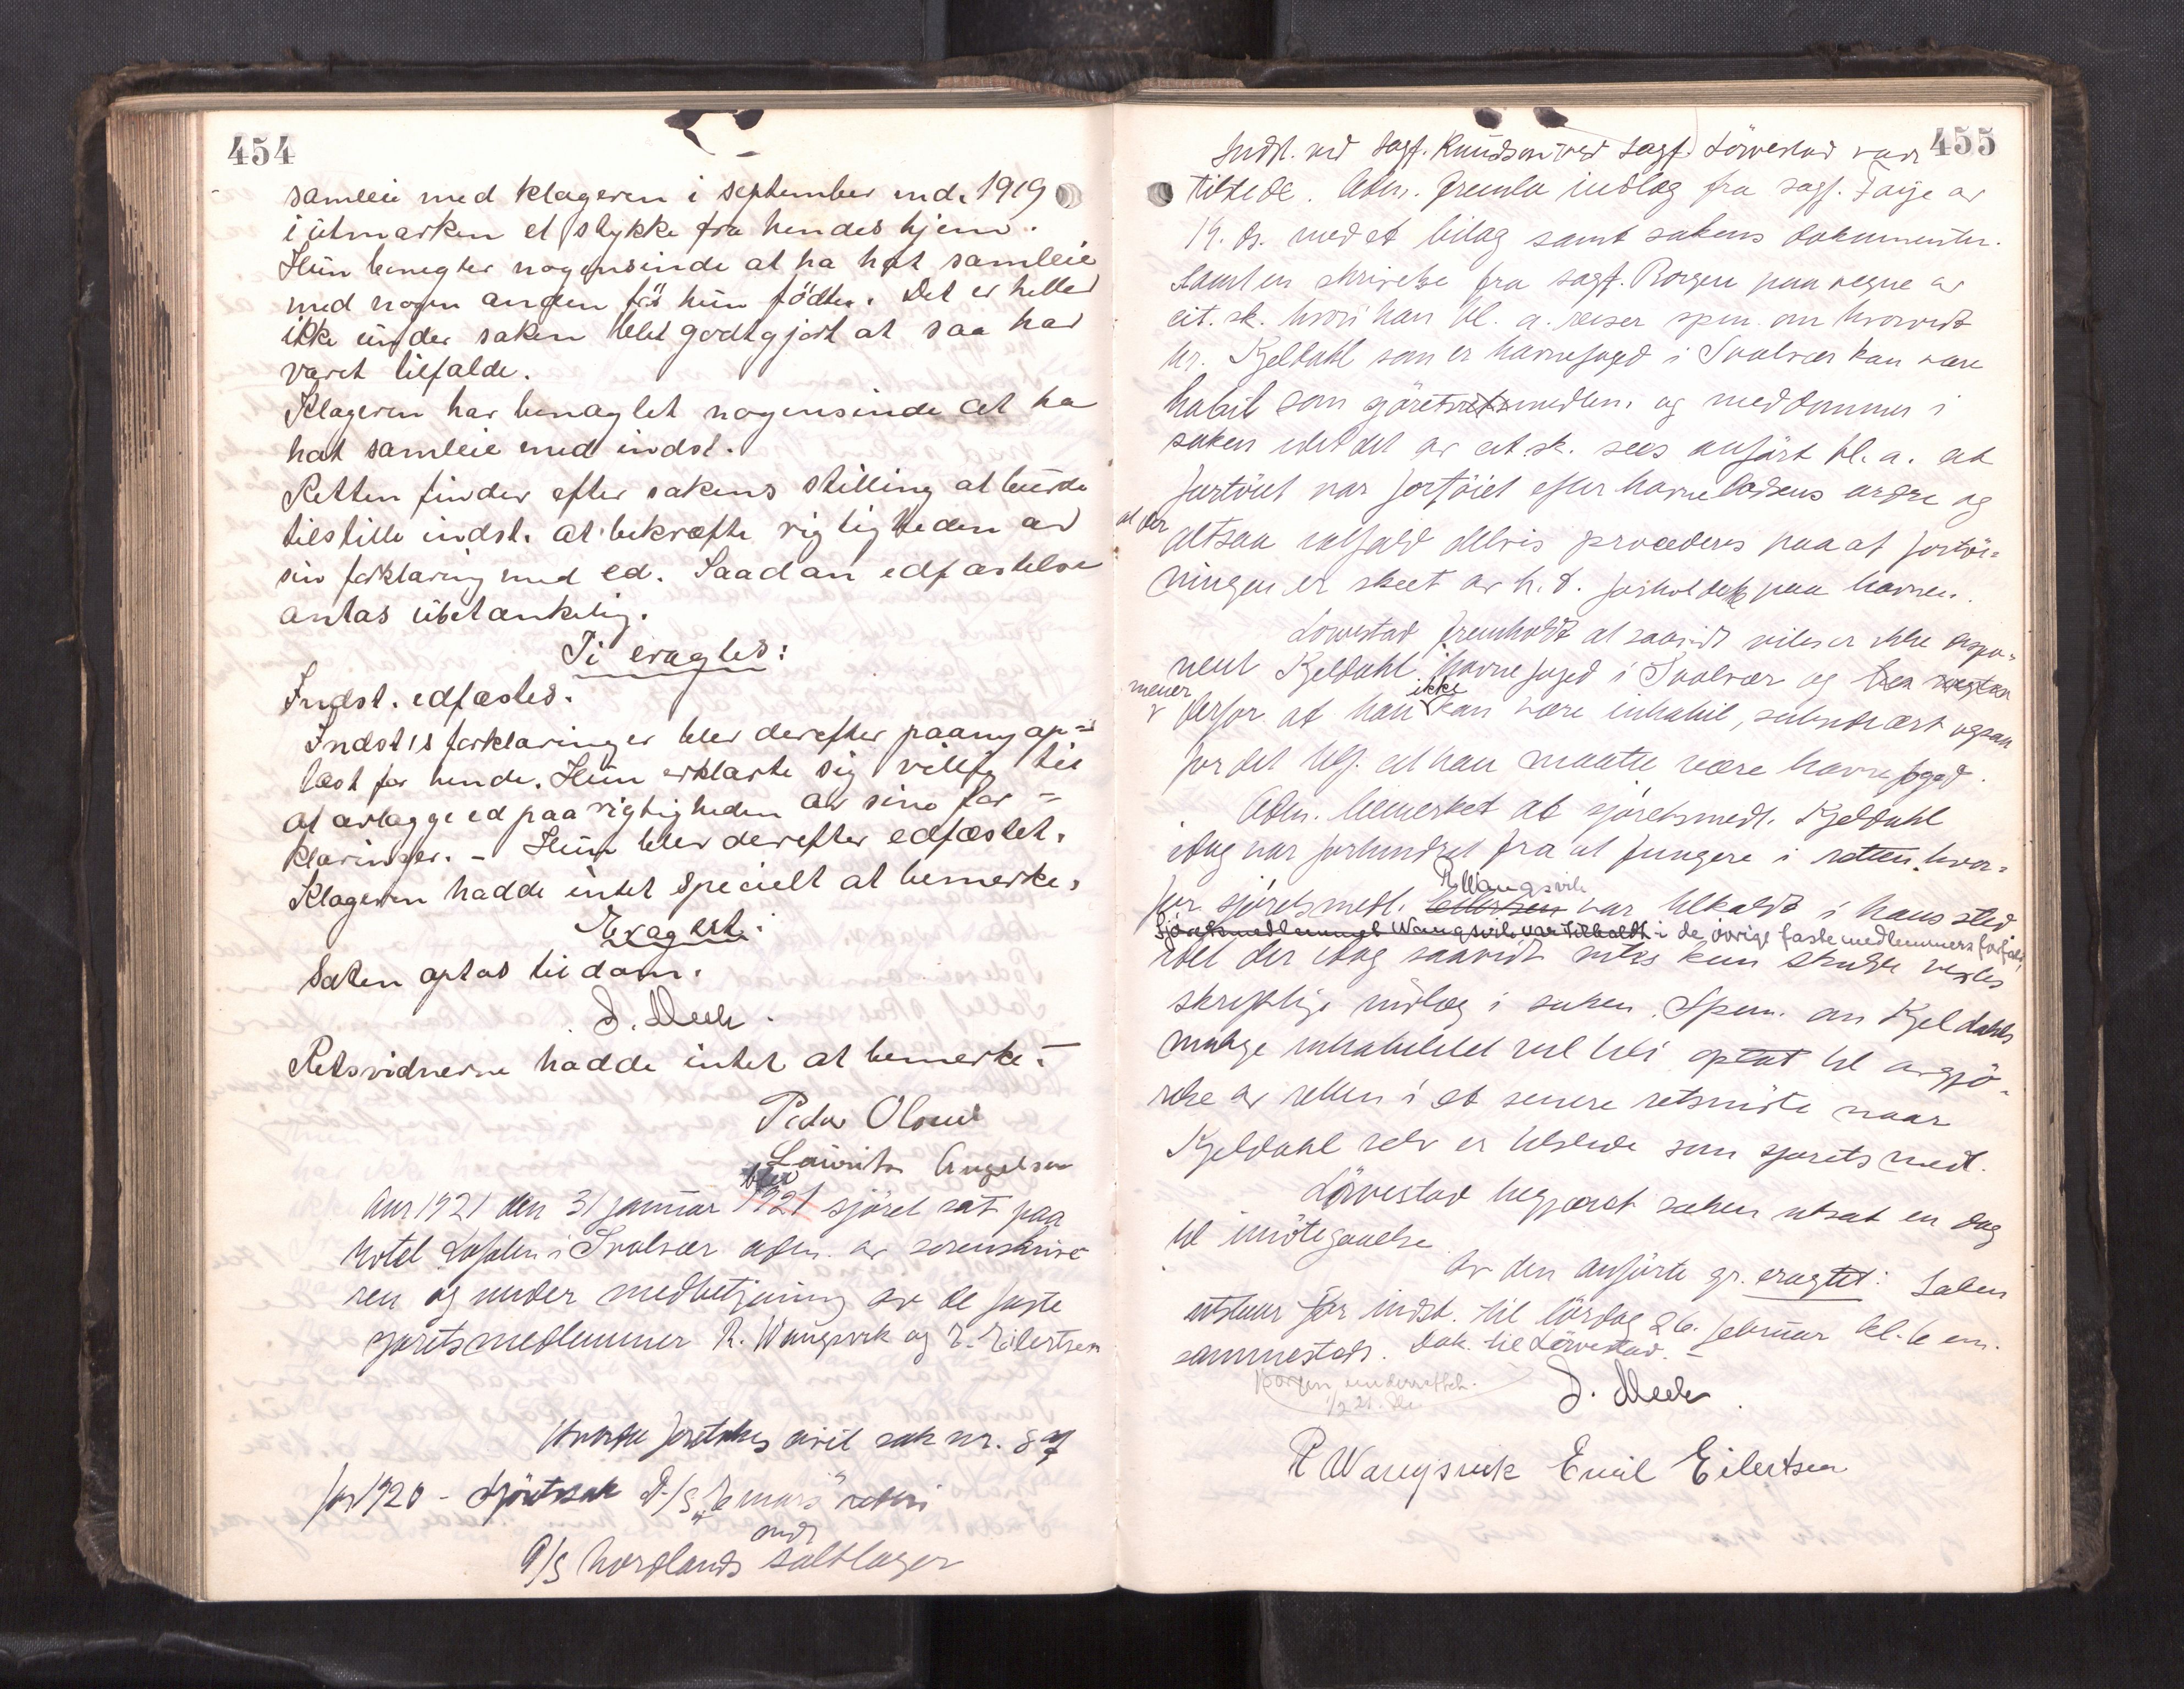 454
samleie med klageren i september md. 1919
i utmarken et stykke fra hendes hjem.
Hun benegter nogensinde at ha hat samleie
med nogen anden før hun fødte. Det er heller
ikke under saken blit godtgjort at saa har
været tilfælde.
Klageren har benægtet nogensinde at ha
hat samleie med indst.
Retten finder efter sakens stilling at burde
tilstille indst. at bekræfte rigtigheden av
sin forklaring med ed. Saadan edfæstelse
antas ubetænkelig.
Ti eragtes:
Indst. edfæstes.
Indst's forklaringer blev derefter paany op=
læst for hende. Hun erklærte sig villig til
at avlægge ed paa rigtigheden av sine for=
klaringer. - Hun blev derefter edfæstet.
Klageren hadde intet specielt at bemerke.
Eragtet:
Saken optas til dom.
Retsvidnerne hadde intet at bemerke.-
Peder Olsen
Laurits Angelsen
blev
Aar 1921 den 31 januar 1921 sjöret sat paa
hotel Lofoten i Svolvær adm. av sorenskrive
ren og under medbetjening av de faste
sjøretsmedlemmer R. Wangsvik og E. Eilertsen
Hvorda foretokes civil sak nr. 87
for 1920 - Sjöretssak D/S "Remus" rederi
mot
A/S Nordlands saltlager
455
Indst. ved sagf. Knudsen ved sagf. Lövestad var
tilstede. Adm. fremla indlæg fra sagf. Faye av
14. ds. med et bilag samt sakens dokumenter.
Samt en skrivelse fra sagf. Borgen paa vegne av
cit. sk. hvori han bl. a. reiser spm. om hvorvidt
hr. Kjeldahl som er havnefoged i Svolvær kan være
habil som sjöretsmedlem og meddommer i
saken idet det av cit. sk. sees anført bl. a. at
fartöiet var fortöiet efter havnelodsens ordre og
at der
altsaa ialfald delvis procederes paa at fortöi=
ningen er skeet av h. t. forholdene paa havnen.
Lövestad fremholdt at saavidt vites er ikke dispo=
nent Kjeldahl havnefoged i Svolvær og
mener ikke
derfor at han kan være inhabil, subsidiært ogsaa
for det tilf. at han maatte være havnefoged.
Adm. bemerket at sjöretsmedl. Kjeldahl
idag var forhindret fra at fungere i retten, hvor=
R Wangsvik
for sjöretsmedl. Eilertsen var tilkaldt i hans sted
Sjöretsmedlemmet Wangsvik var tilkaldt i de övrige faste medlemmers forfald,
idet der idag saavidt vites kun skulde veksles
skriftlige indlæg i saken. Spm. om Kjeldahls
mulige inhabilitet vil bli optat til avgjö=
relse av retten i et senere retsmöte naar
Kjeldahl selv er tilstede som sjöretsmedl.
Lövestad begjæret saken utsat en dag
til imötegaaelse
Av den anførte gr. eragtet: Saken
utstaar for indst. til lördag 26. februar kl. 6 em.
sammesteds. Dok. til Lövestad.-
Borgen underrettet.
1/2 21.
R Wangsvik Emil Eilertsen